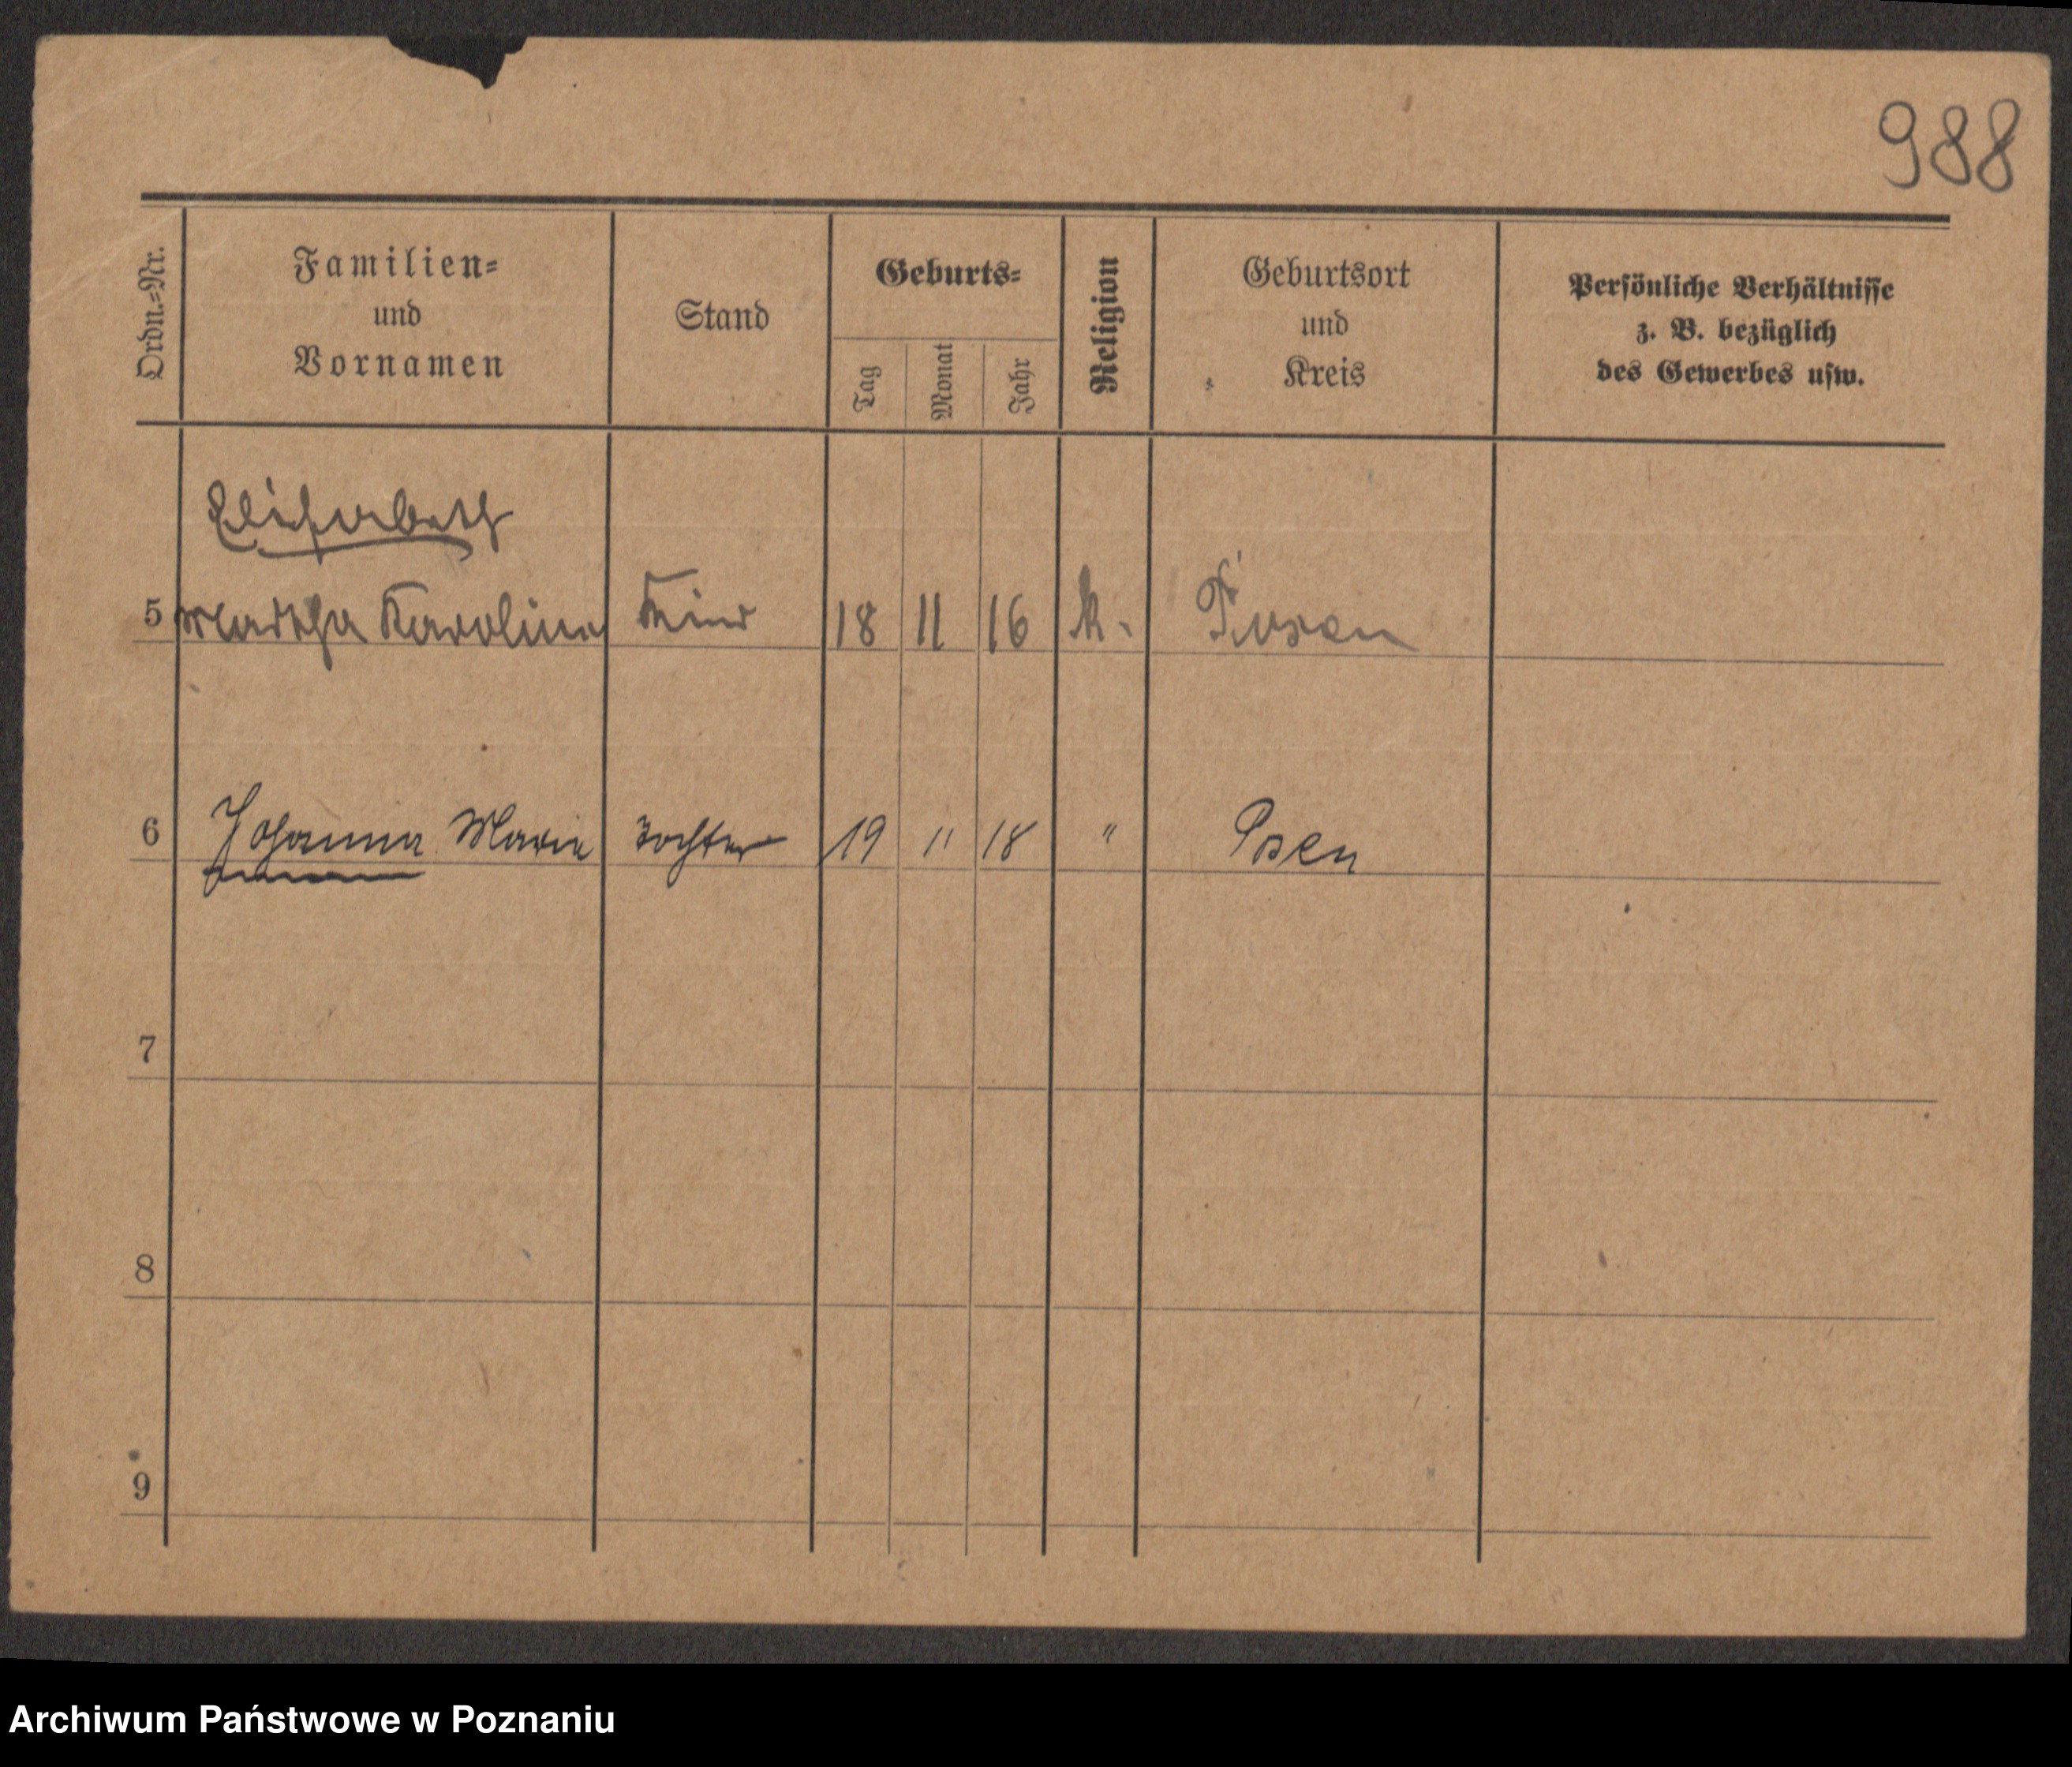 988
Ordn.=Nr.
Familien=
und
Vornamen
Stand
Geburts=
Tag
Monat
Jahr
Religion
Geburtsort
und
Kreis
Persönliche Verhältnisse
z. B. bezüglich
des Gewerbes usw.
Elisabeth
5 Martha Karolina Kind 18 11 16 k. Posen
6 Johanna Marie Tochter 19 11 18 " Posen
7
8
9
Archiwum Państwowe w Poznaniu